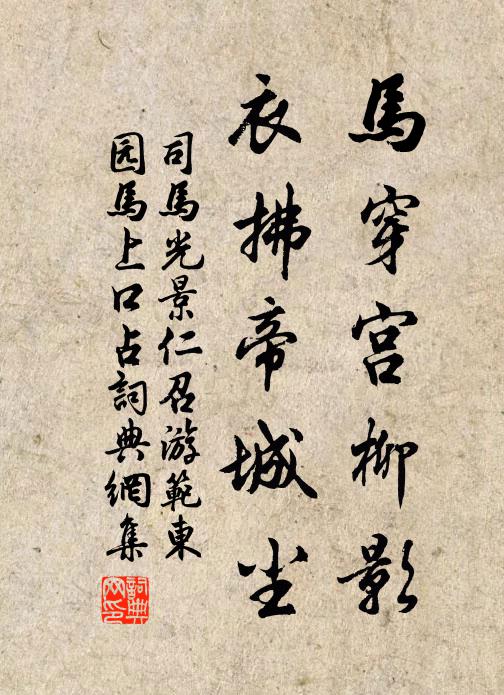 馬穿宮柳影
衣拂帝城尘
司馬光景仁召游範東
园馬上口占詞典網集
詞典网印